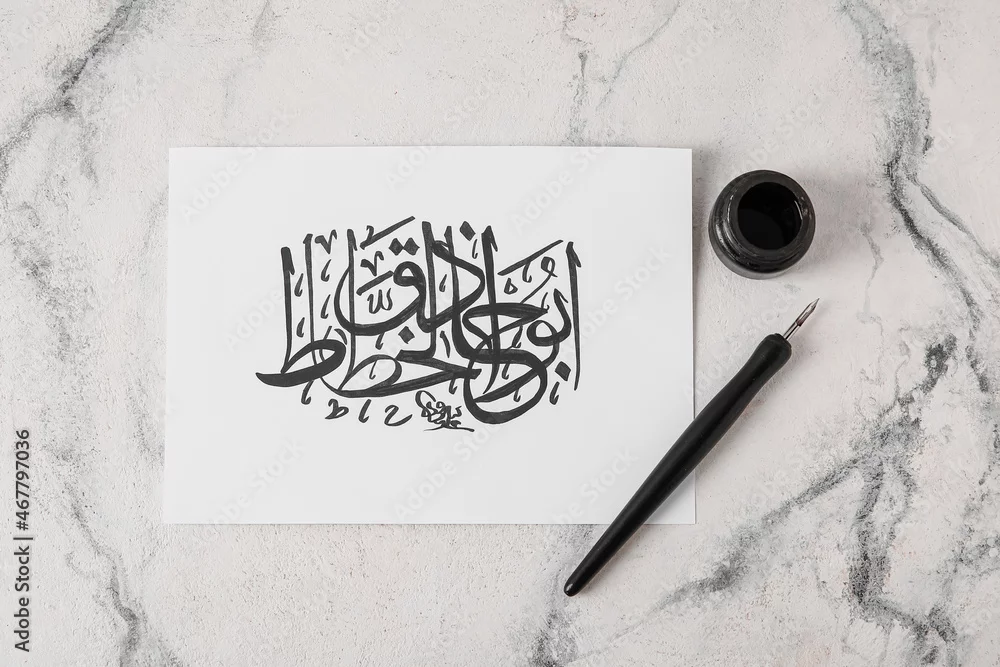 ابو حاذق
الخطاط
Adobe Stock | #467797036